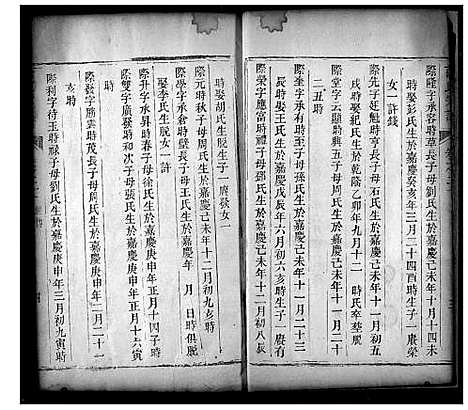 際隆字承容時草長子母劉氏生於嘉慶己未年十月十四未
時娶彭氏生於嘉慶癸亥年三月二十四酉時生子一慶榮
女一許錢
際先字廷魁時貢子母石氏生於嘉慶己未年十一月初五
戌時娶紀氏生於乾隆乙卯年九月十二時氏卒葬脫
際堂字云顯時典五子母周氏生於嘉慶己未年十一月二十
二丑時
際奎字承有時至子母孫氏生於嘉慶己未年十一月二十三
辰時娶王氏生於嘉慶戊辰年六月初六亥時生子一慶有
際榮字應富時禮子母鄧氏生於嘉慶己未年十二月初八辰
時娶胡氏生脫生子一慶發女一
際元時秋子母周氏生於嘉慶己未年十二月初九亥時
際學字承倉時璧長子母王氏生於嘉慶年 月 日時俱脫
娶李氏生脫女一許
際升字承昇時春子母徐氏生於嘉慶庚申年正月十四子時
際雙字廣發時和次子母張氏生於嘉慶庚申年正月十六寅
時
際發字勝雲時茂長子母周氏生於嘉慶庚申年二月二十一
亥時
際利字待玉時祿子母劉氏生於嘉慶庚申年三月初九寅時